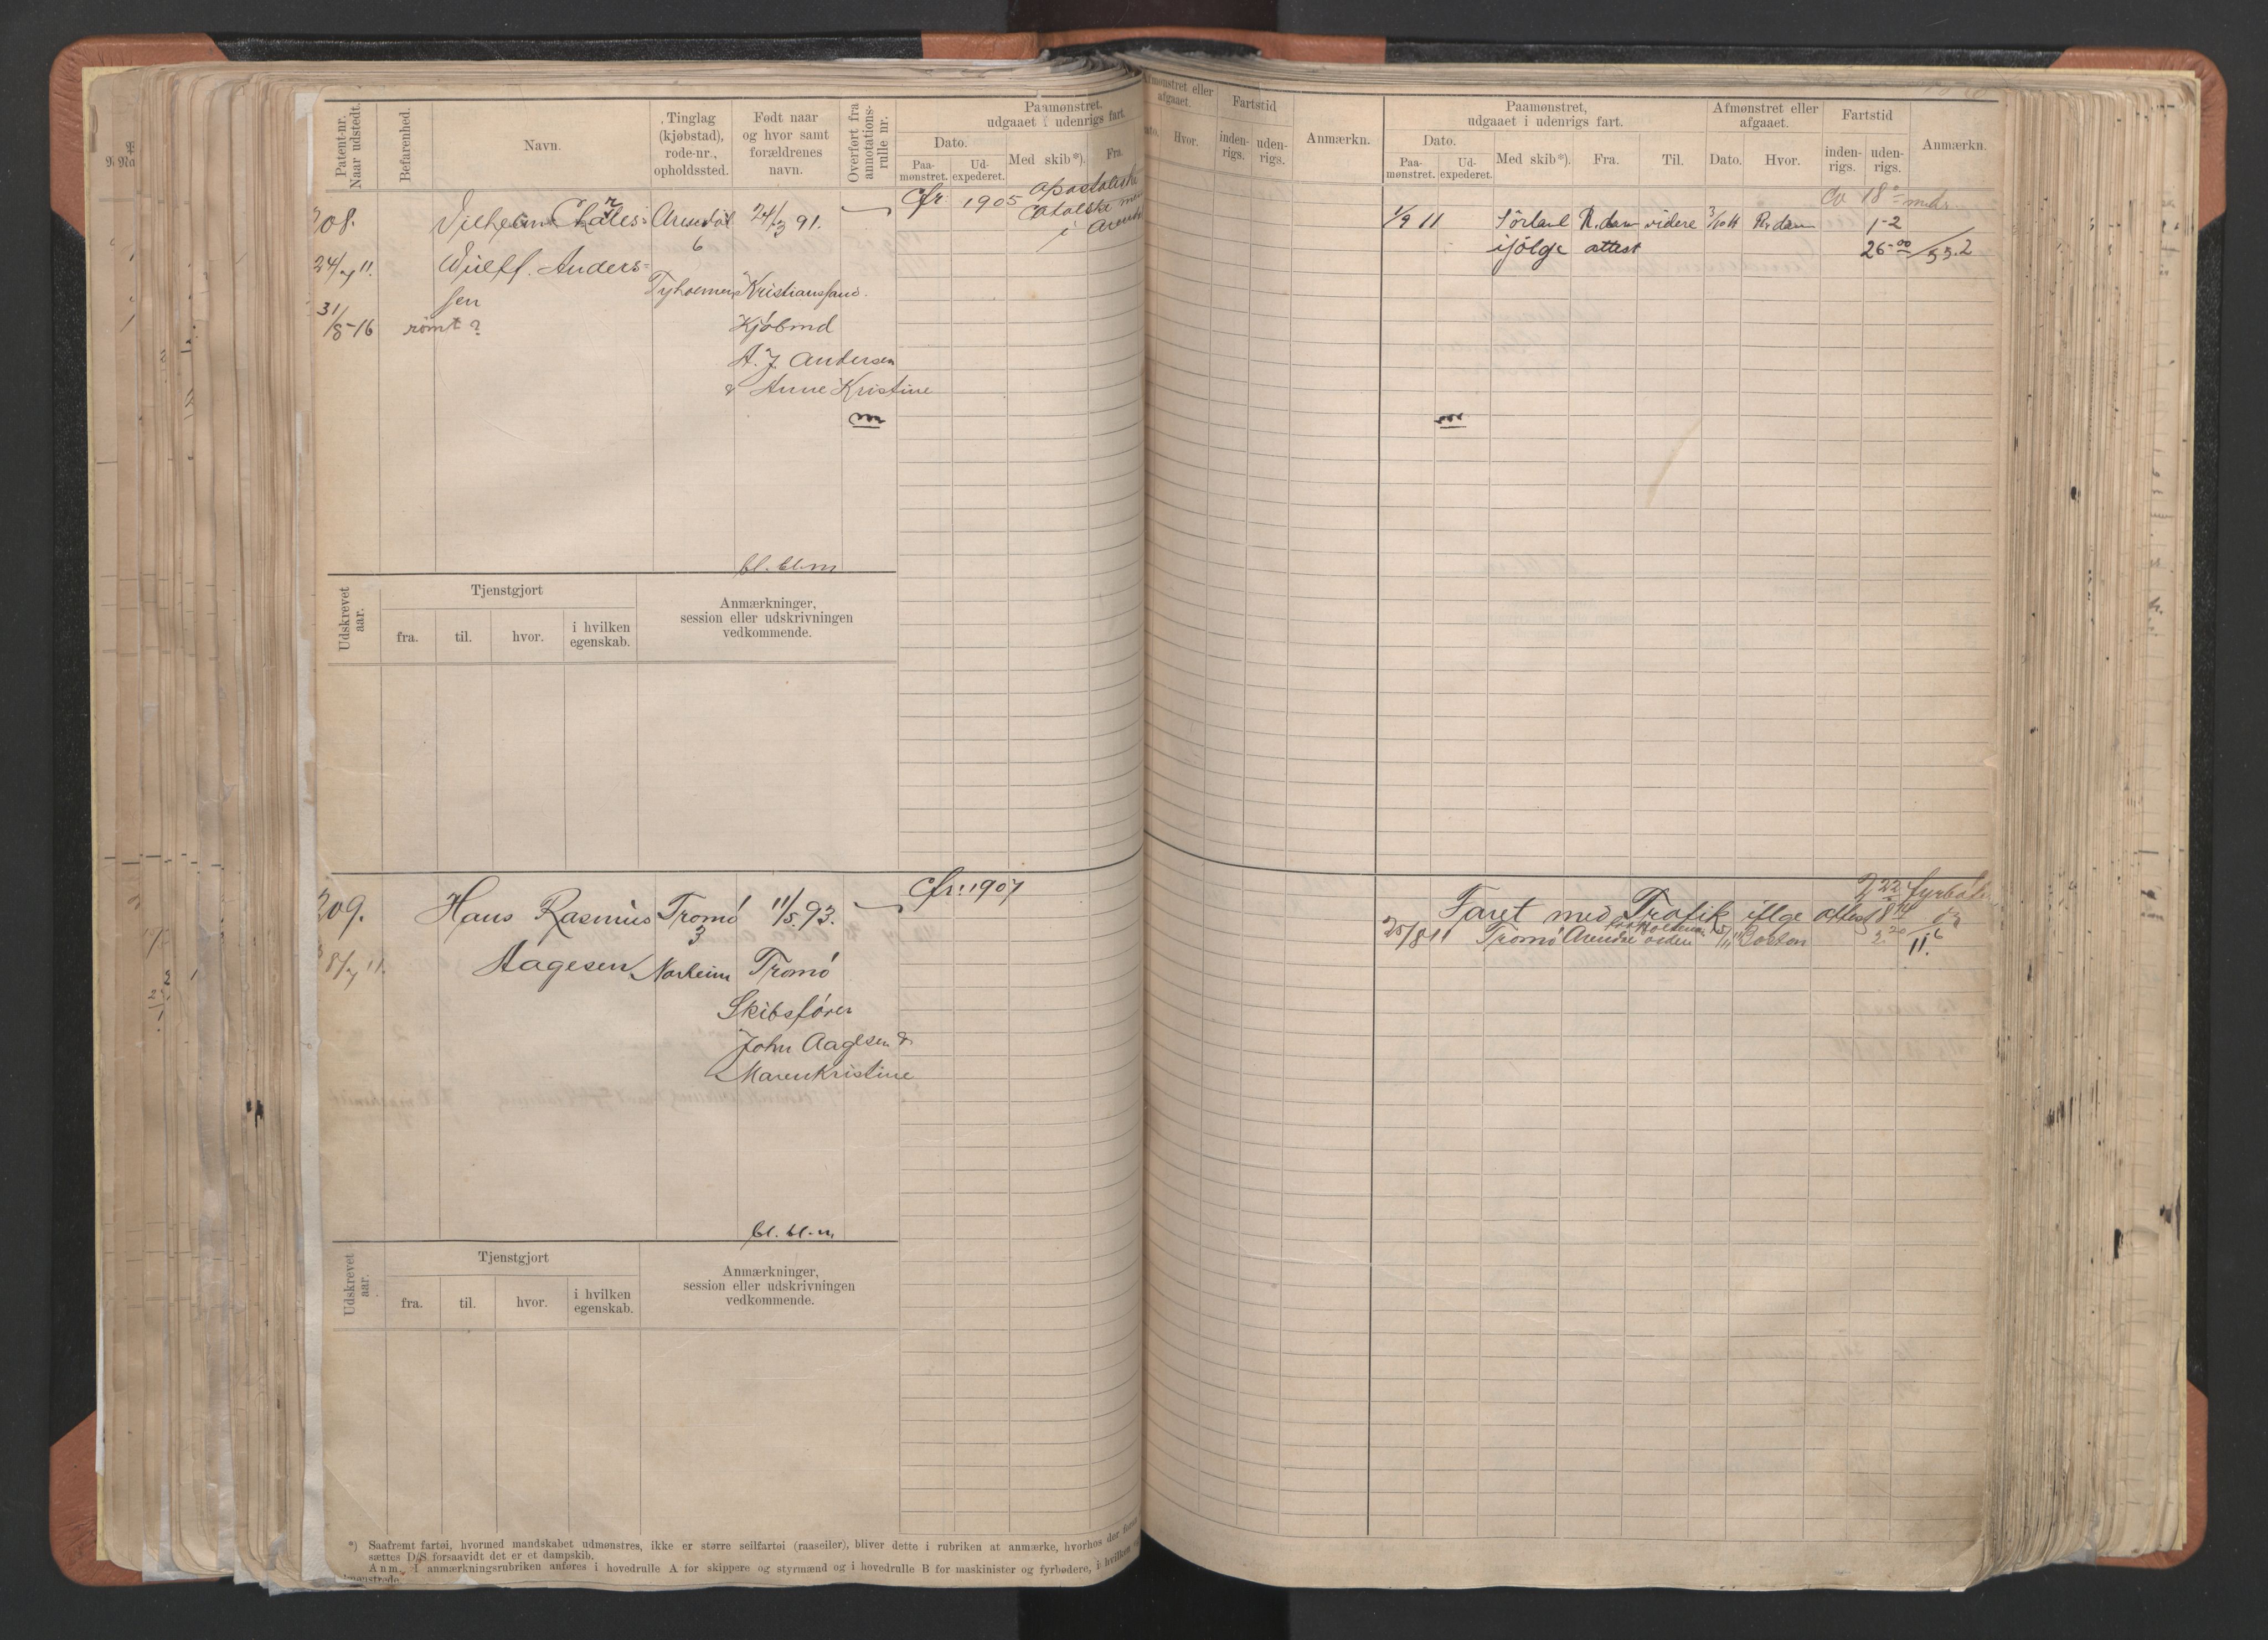 Patent-nr. Naar udstedt.
Befarenhed.
Navn.
Tinglag (kjøbstad), rode-nr., opholdssted.
Født naar og hvor samt forældrenes navn.
Overført fra annotations-rulle nr.
Paamønstret.
udgaaet i udenrigs fart
Dato.
Paa-mønstret.
Ud-expederet.
Med skib*).
Fra.
208.
24/7 11.
31/8-16
rømt ?
Vilhelm Charles
Wulff Anders=
sen
Arendal
6
Tyholmen
24/3 91.
Kristianssand.
Kjöbmd
A. J. Andersen
& Anne Kristine
Cfr 1905 apostoliske
i Arendal
bl. bl. m
Udskrevet aar.
Tjenstgjort
fra.
til.
hvor.
i hvilken egenskab.
Anmærkninger,
session eller udskrivningen
vedkommende.
209.
Hans Rasmus
Aagesen
Tromö
3
Norheim
11/5. 93.
Tromö
Skibsfører
John Aagesen &
Maren Kristine
Cfr: 1907
bl. bl. m
Udskrevet aar.
Tjenstgjort
fra.
til.
hvor.
i hvilken egenskab.
Anmærkninger,
session eller udskrivningen
vedkommende.
*) Saafremt fartøi, hvormed mandskabet udmønstres, ikke er større seilfartøi (raaseiler), bliver dette i rubriken at anmærke, hvorhos der foran
sættes D/S forsaavidt det er et dampskib.
Anm. I anmærkningsrubriken anføres i hovedrulle A for skippere og styrmænd og i hovedrulle B for maskinister og fyrbødere, i hvilken
Afmønstret eller afgaaet.
Hvor.
Fartstid
inden-rigs.
uden-rigs.
Anmærkn.
Paamønstret,
udgaaet i udenrigs fart.
Dato.
Paa-mønstret.
Ud-expederet.
Med skib*).
Fra.
Til.
Afmønstret eller afgaaet.
Dato.
Hvor.
Fartstid
inden-rigs.
uden-rigs.
Anmærkn.
18 mdr
1/9 11 Sörland R.dam videre 3/10 11 R.dam 1-2
ifölge attest 26-00
Faret med Trafik iflge attest
25/8 11 Tromö Arendal Boston 2.20 11.6